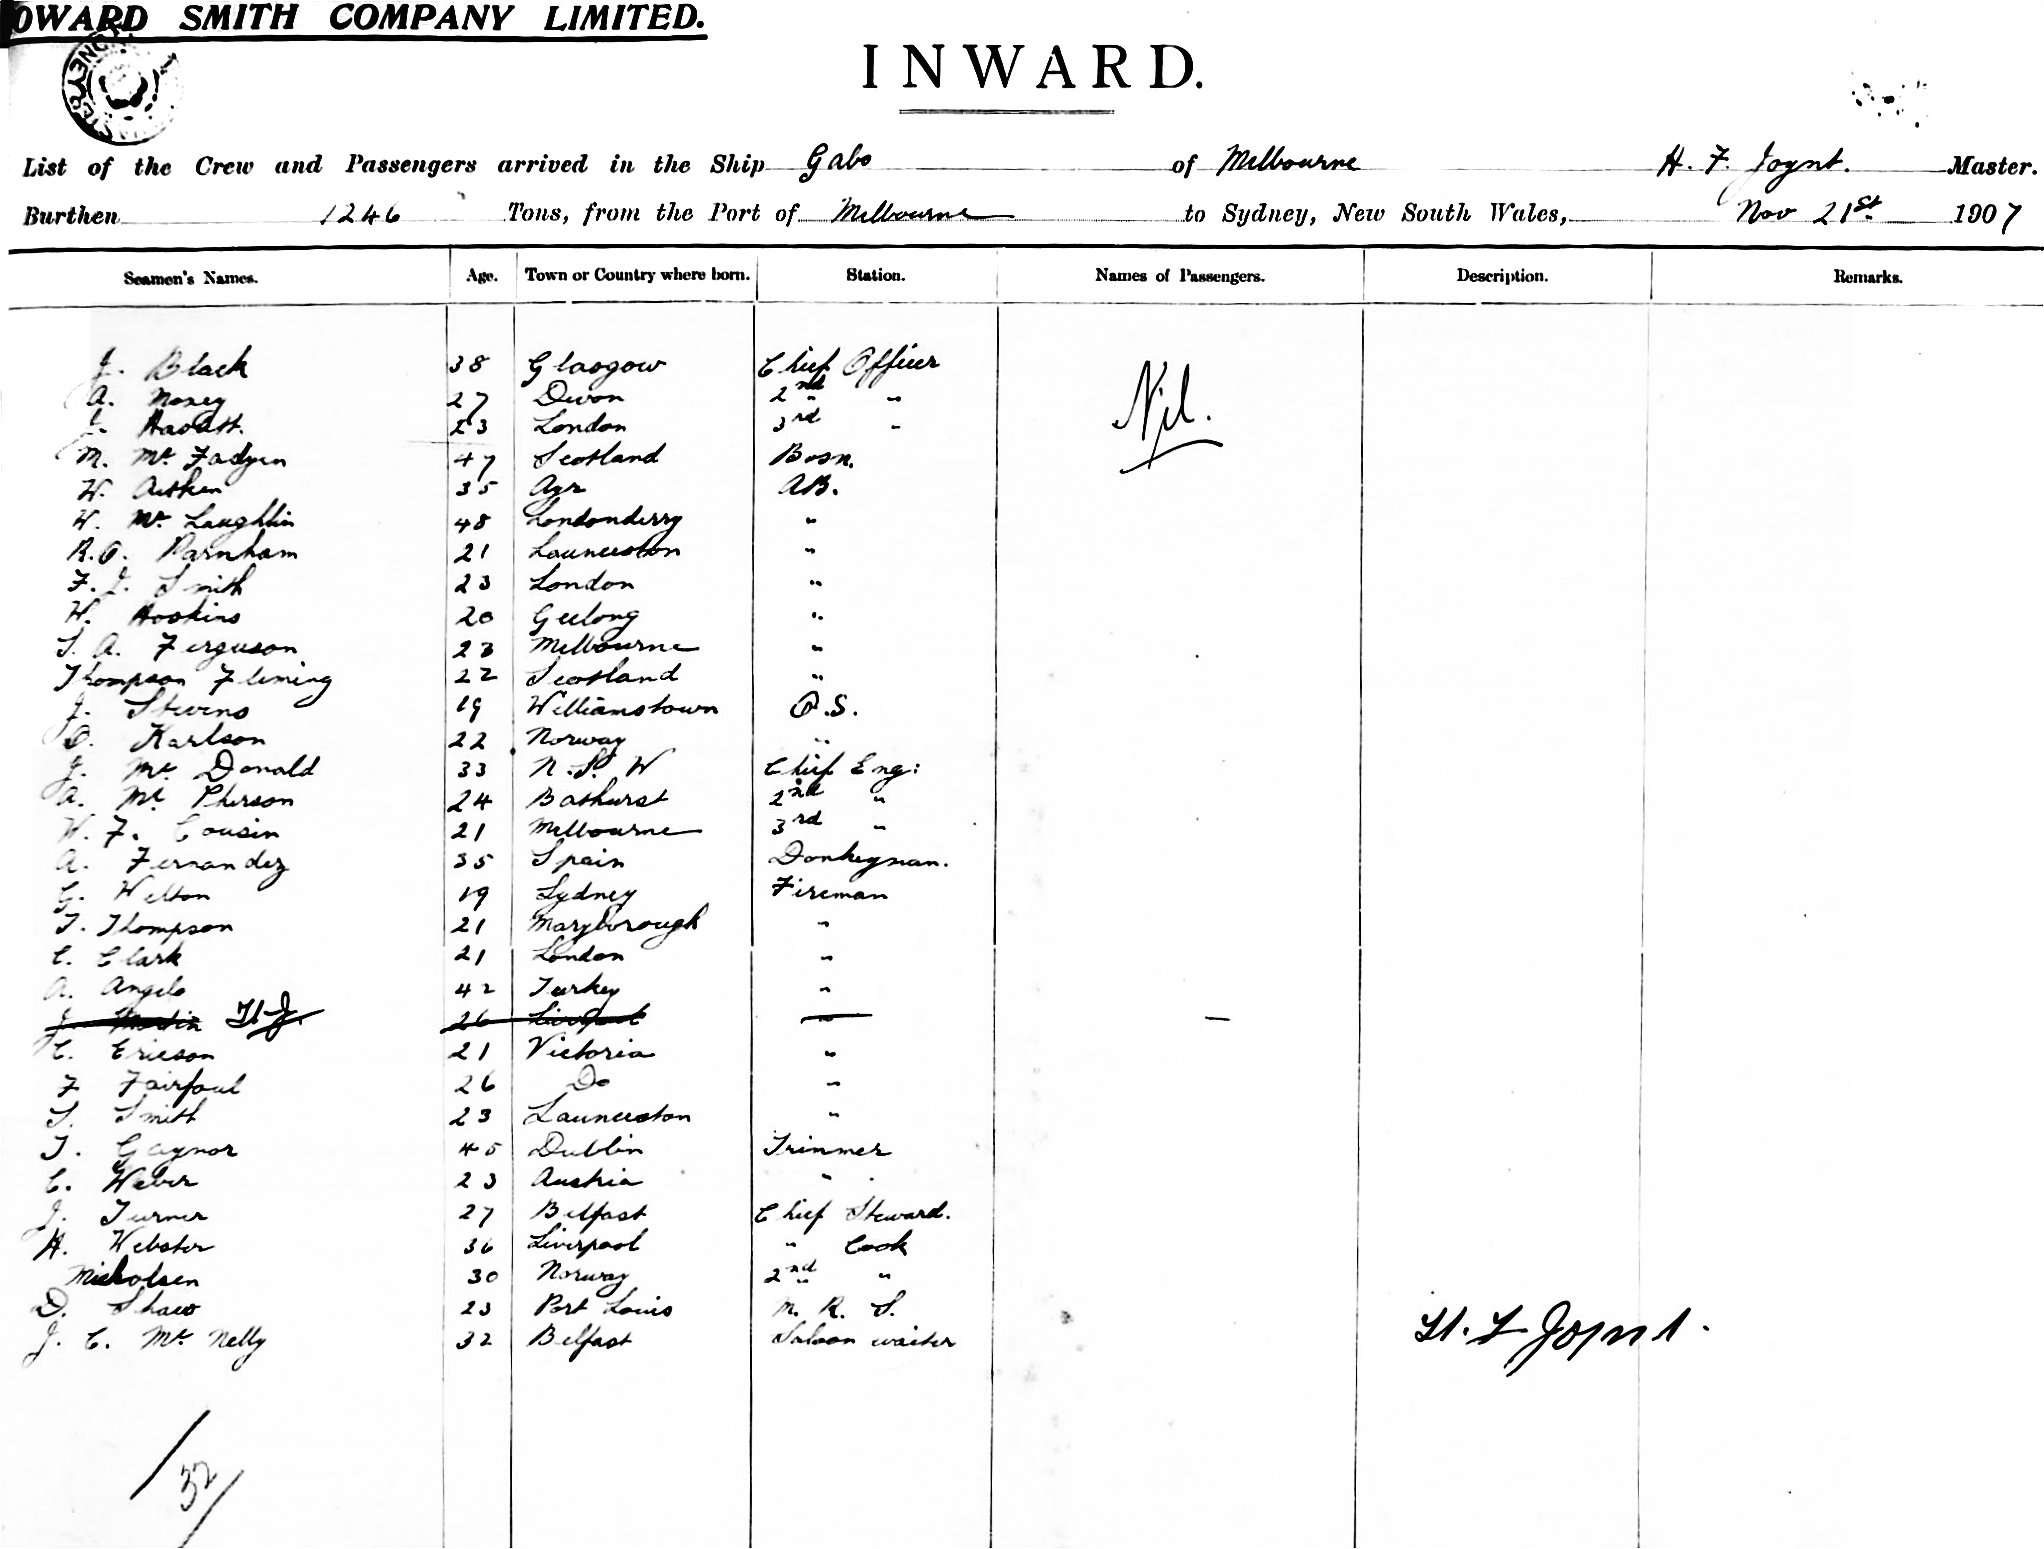 OWARD SMITH COMPANY LIMITED.
INWARD.
List of the Crew and Passengers arrived in the Ship Gabo of Melbourne H. F. Joynt. Master.
Burthen 1246 Tons, from the Port of Melbourne to Sydney, New South Wales, Nov 21st 1907
Seamen's Names. Age. Town or Country where born. Station. Names of Passengers. Description. Remarks.
J. Black 38 Glasgow Chief Officer
Nil.
A. 27 Devon 2nd " "
J. 23 London 3rd "
M. Mc Fadyen 47 Scotland Bosn.
W. Aitken 35 Ayr AB.
W. Mc Laughlin 48 Londonderry "
R.O. Parnham 21 Launceston "
F. J. Smith 23 London "
W. Hoskins 20 Geelong "
A. Ferguson 23 Melbourne "
Thompson Fleming 22 Scotland "
J. Stevens 19 Williamstown O.S.
O. Karlson 22 Norway "
J. Mc Donald 33 N.S.W Chief Eng:
A. Mc Pherson 24 Bathurst 2nd "
W. F. Cousin 21 Melbourne 3rd "
A. Fernandez 35 Spain Donkeyman.
G. Welton 19 Sydney Fireman
T. Thompson 21 Maryborough "
C. Clark 21 London "
A. Angelo 42 Turkey "
J. Martin H.J. 26 Liverpool "
C. Ericson 21 Victoria "
F Fairfoul 26 Do "
S. Smith 23 Launceston "
T. Gaynor 45 Dublin Trimmer
C. Weber 23 Austria "
J. Turner 27 Belfast Chief Steward.
H. Webster 36 Liverpool " Cook
Nicholsen 30 Norway 2nd " "
D. Shaw 23 Port Louis M. R. S.
J. C. Mc Nelly 32 Belfast Saloon waiter
H. F Joynt.
32